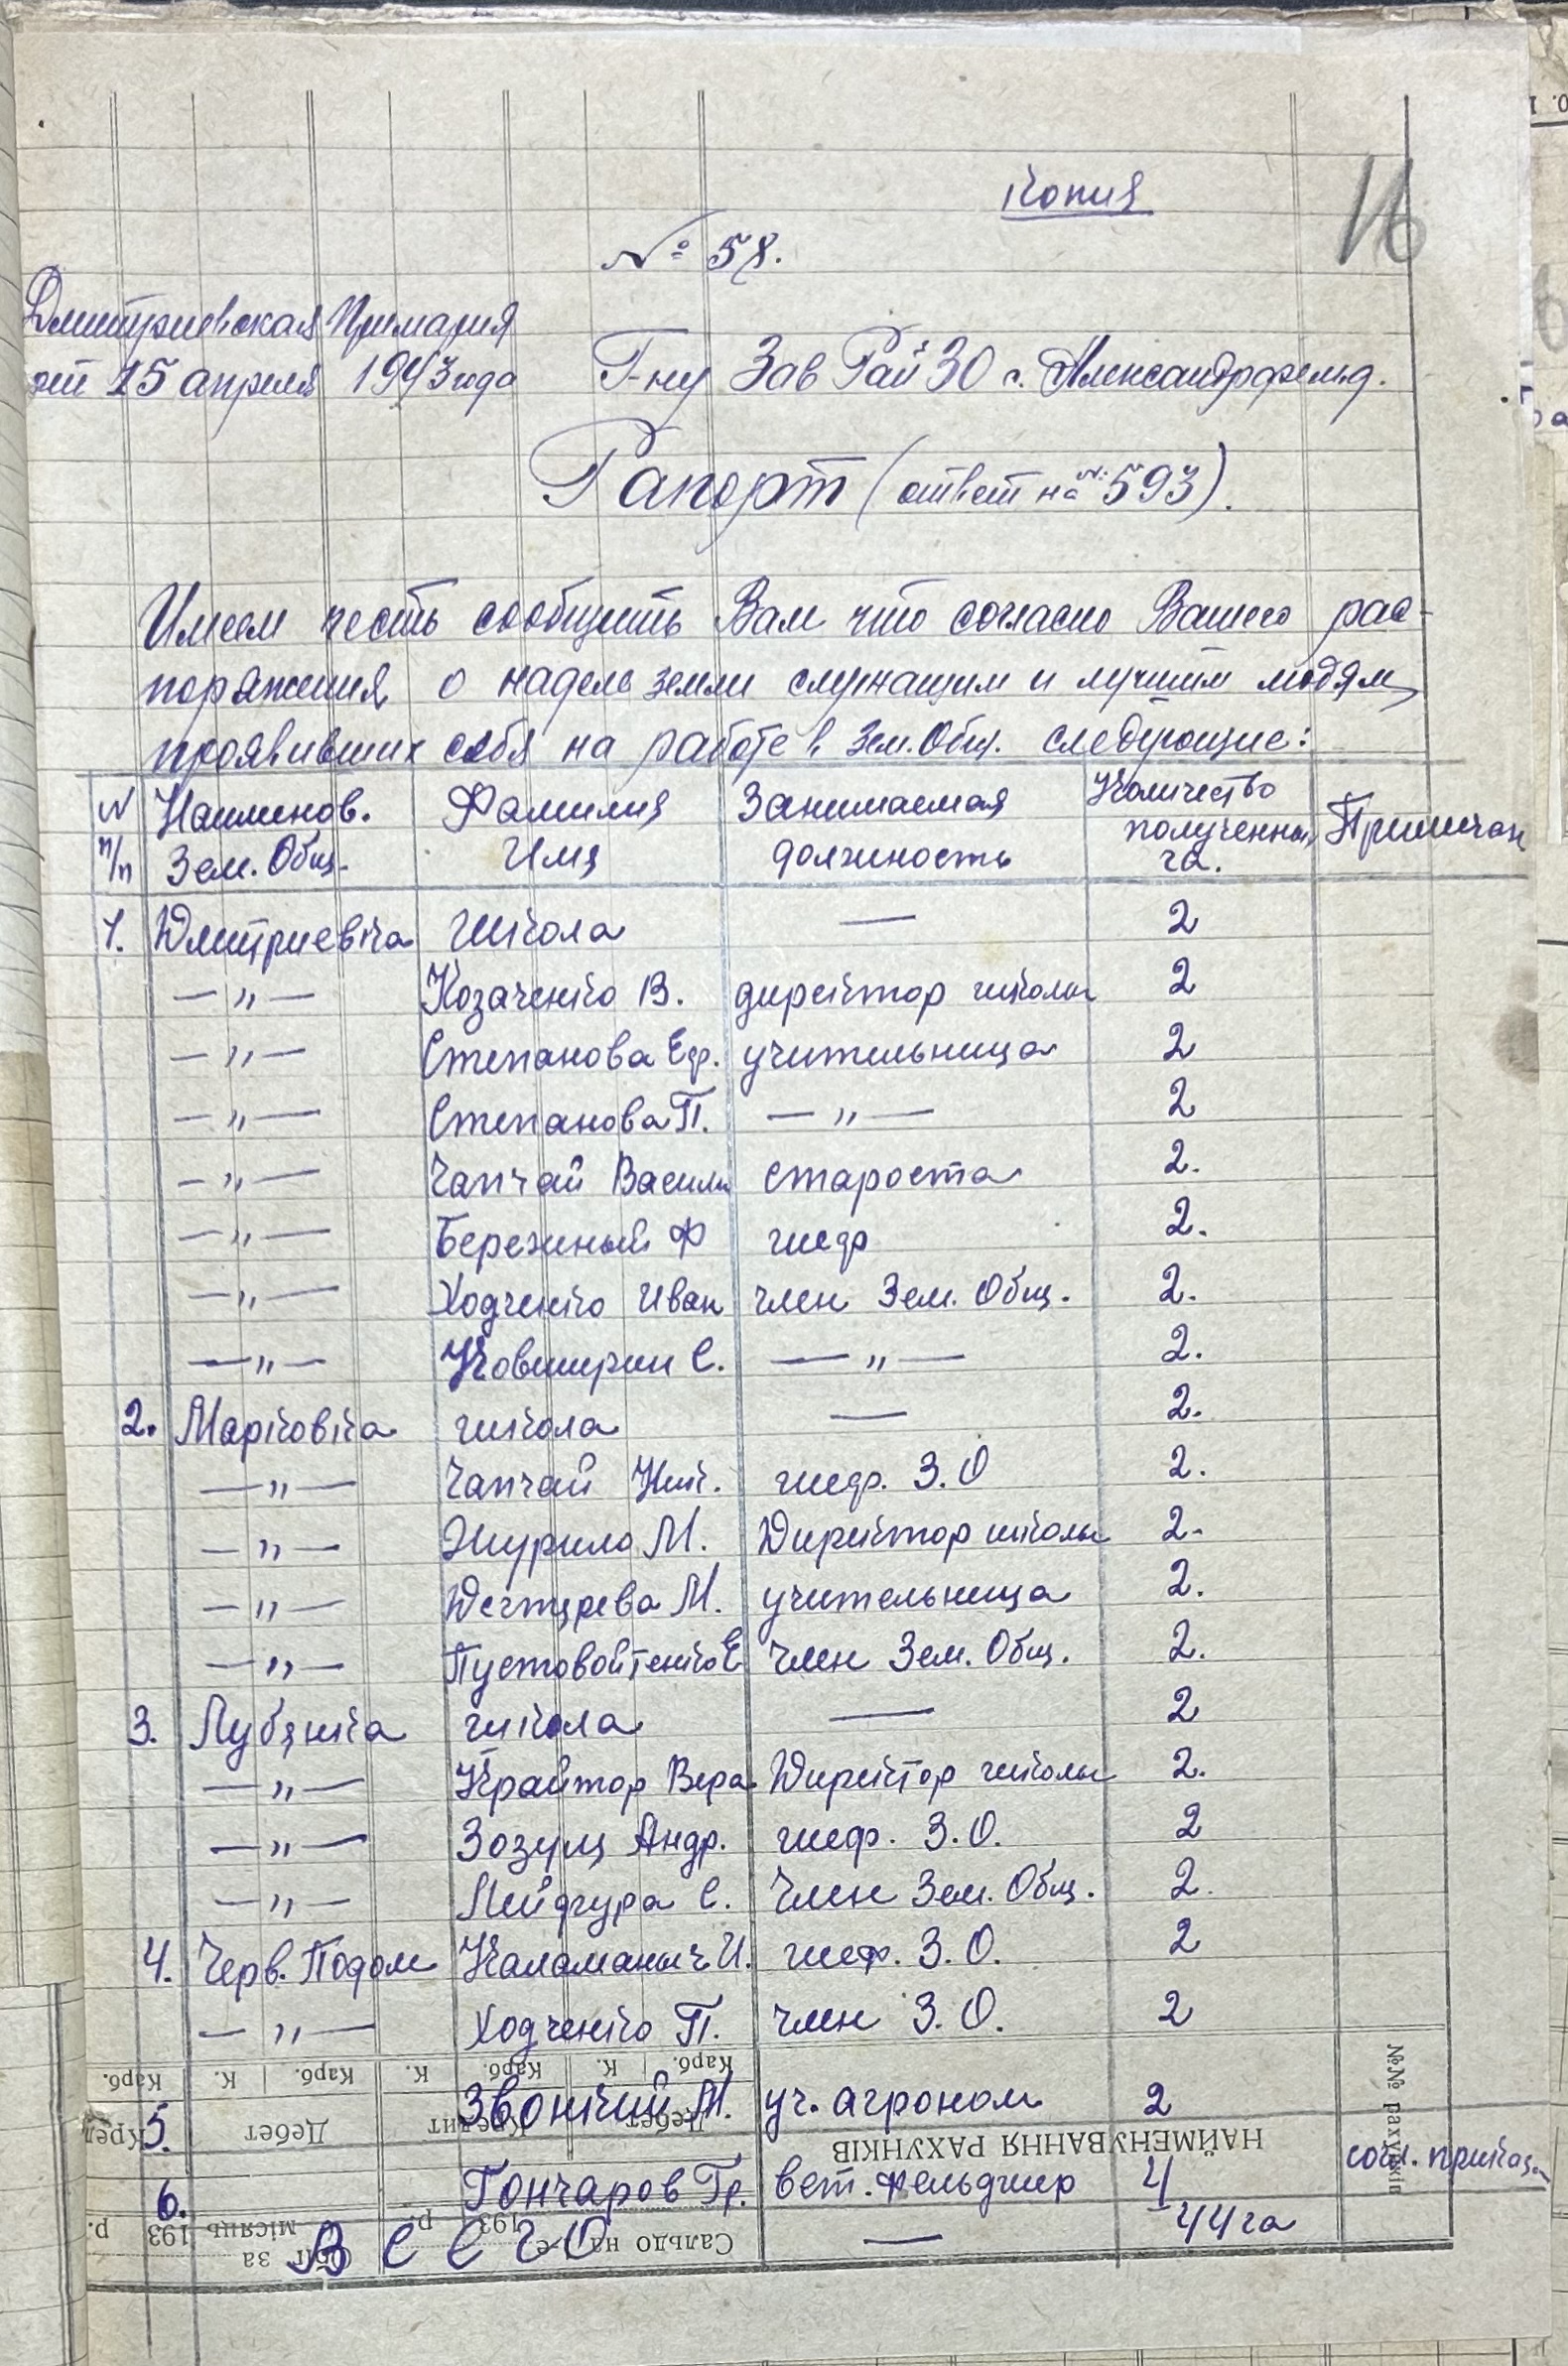 Копия
16
№ 58.
Дмитриевская Примария
от 15 апреля 1943 года
Г-ну Зав Рай ЗО с. Александрфельд.
Рапорт (ответ на № 593).
Имеем честь сообщить Вам что согласно Вашего рас-
поряжения, о наделе земли служащим и лучшим людям,
проявивших себя на работе в Зем. Общ. следующие:
N п/п Наименов. Зем. Общ. Фамилия Имя Занимаемая должность Количество полученных га. Примечан
1. Дмитриевка школа — 2
— " — Козаченко В. директор школы 2
— " — Степанова Еф. учительница 2
— " — Степанова П. — " — 2
— " — Чапчай Васили староста 2.
— " — Бережный Ф шеф 2.
— " — Ходченко Иван член Зем. Общ. 2.
— " — Ковширин С. — " — 2.
2. Марковка школа — 2.
— " — Чапчай Ник. шеф. З.О 2.
— " — Журило М. Директор школы 2.
— " — Дегтярева М. учительница 2.
— " — Пустовойтенко Е член Зем. Общ. 2.
3. Лубянка школа — 2
— " — Крайтор Вера Директор школы 2.
— " — Зозуля Андр. шеф. З.О. 2
— " — Лейдгура С. Член Зем. Общ. 2.
4. Черв. Подом Каламаныч И. шеф. З.О. 2
— " — Ходченко П. член З.О. 2
Карб. К. Карб. К. Карб. К. Карб.
5. Звонкий М. уч. агроном 2
Кред Дебет Кредит Дебет
НАЙМЕНУВАННЯ РАХУНКІВ
№№ рахунків
6. Гончаров Гр. вет. фельдшер 4 согл. приказа
Сальдо на 193 р.
Обіг за місяць 193 р.
ВСЕГО — 44 га